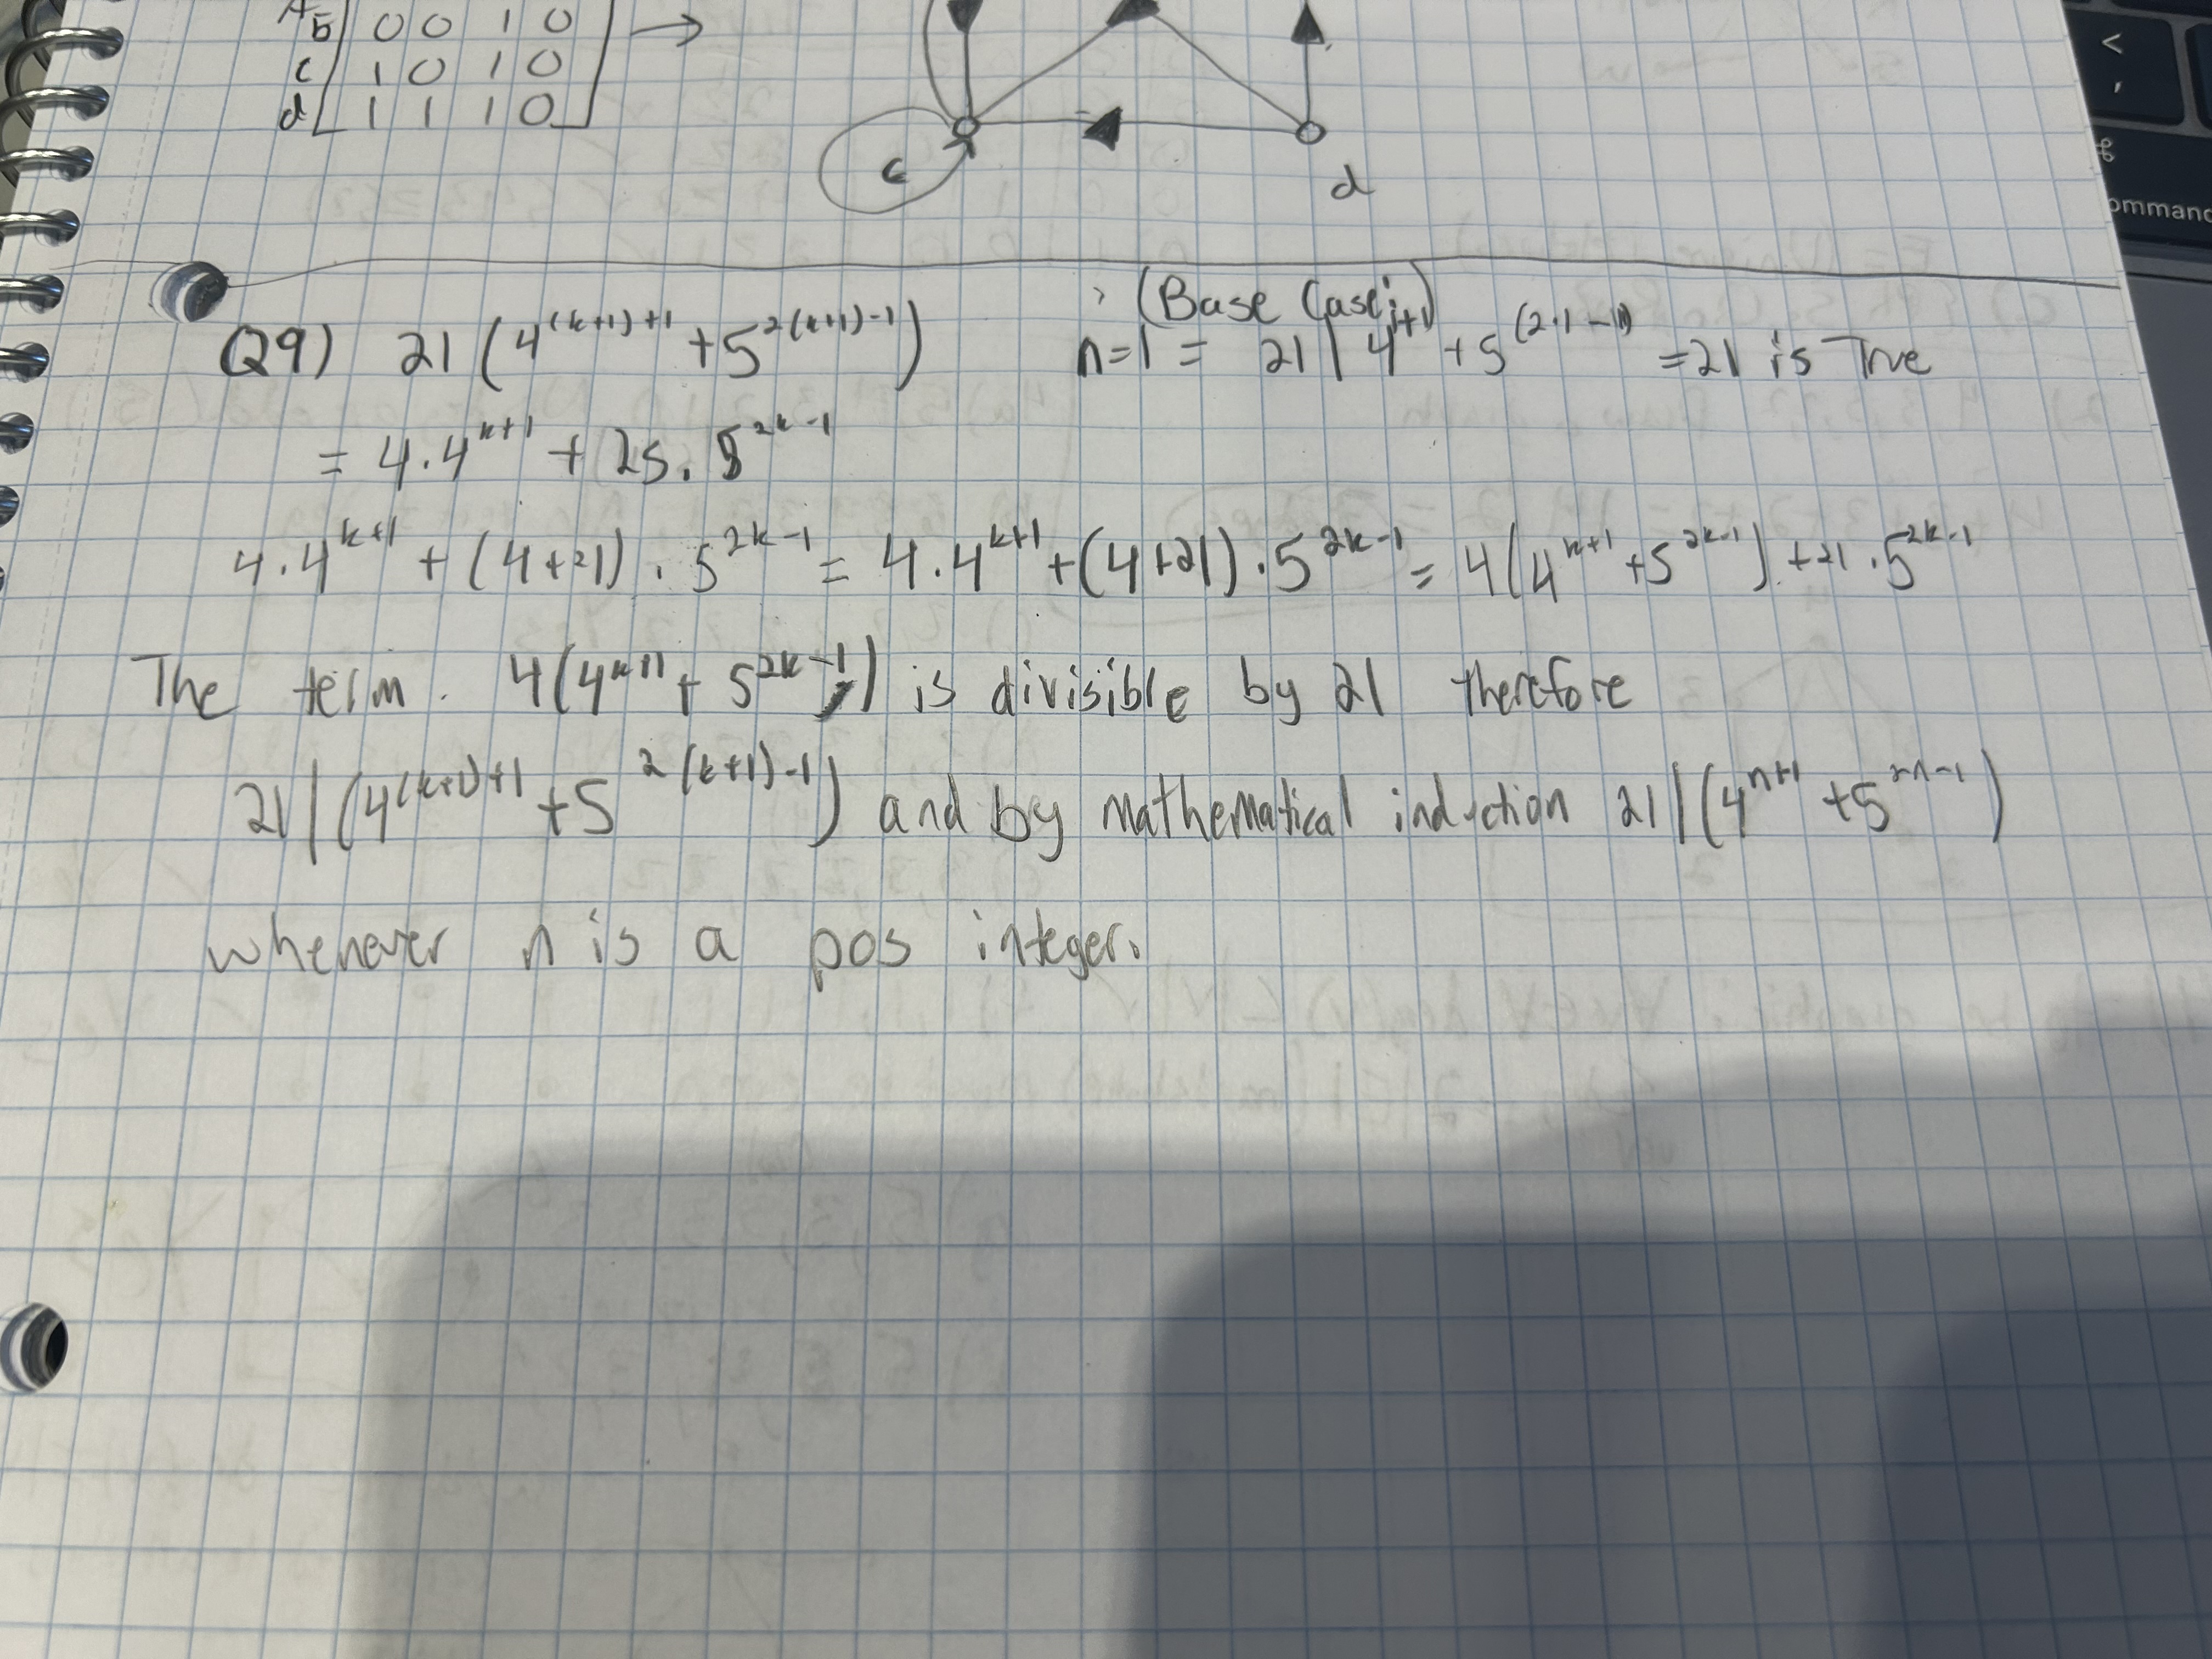 A
b 0 0 1 0
c 1 0 1 0
d 1 1 1 0 →
c
d
(Base Case)
Q9) 21 (4^(k+1)+1 + 5^2(k+1)-1) n=1 = 21 | 4^1+1) + 5^(2·1-1) = 21 is True
= 4·4^k+1 + 25·5^2k-1
4·4^k+1 + (4+21)·5^2k-1 = 4·4^k+1 + (4+21)·5^2k-1 = 4(4^k+1 + 5^2k-1) + 21·5^2k-1
The term. 4(4^k+1 + 5^2k-1)) is divisible by 21 therefore
21 | (4^(k+1)+1 + 5^2(k+1)-1) and by mathematical induction 21 | (4^n+1 + 5^2n-1)
whenever n is a pos integer.
⌘
ommand
<
,